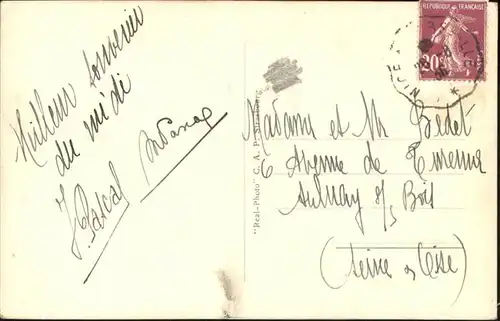 Meilleur souvenir
du midi
J. Pascal
"Real-Photo" C. A. P. Strasbourg
RÉPUBLIQUE FRANÇAISE
20c
NICE
Madame et Mr Bédet
6 Avenue de Turenne
Aulnay s/s Bois
(Seine & Oise)